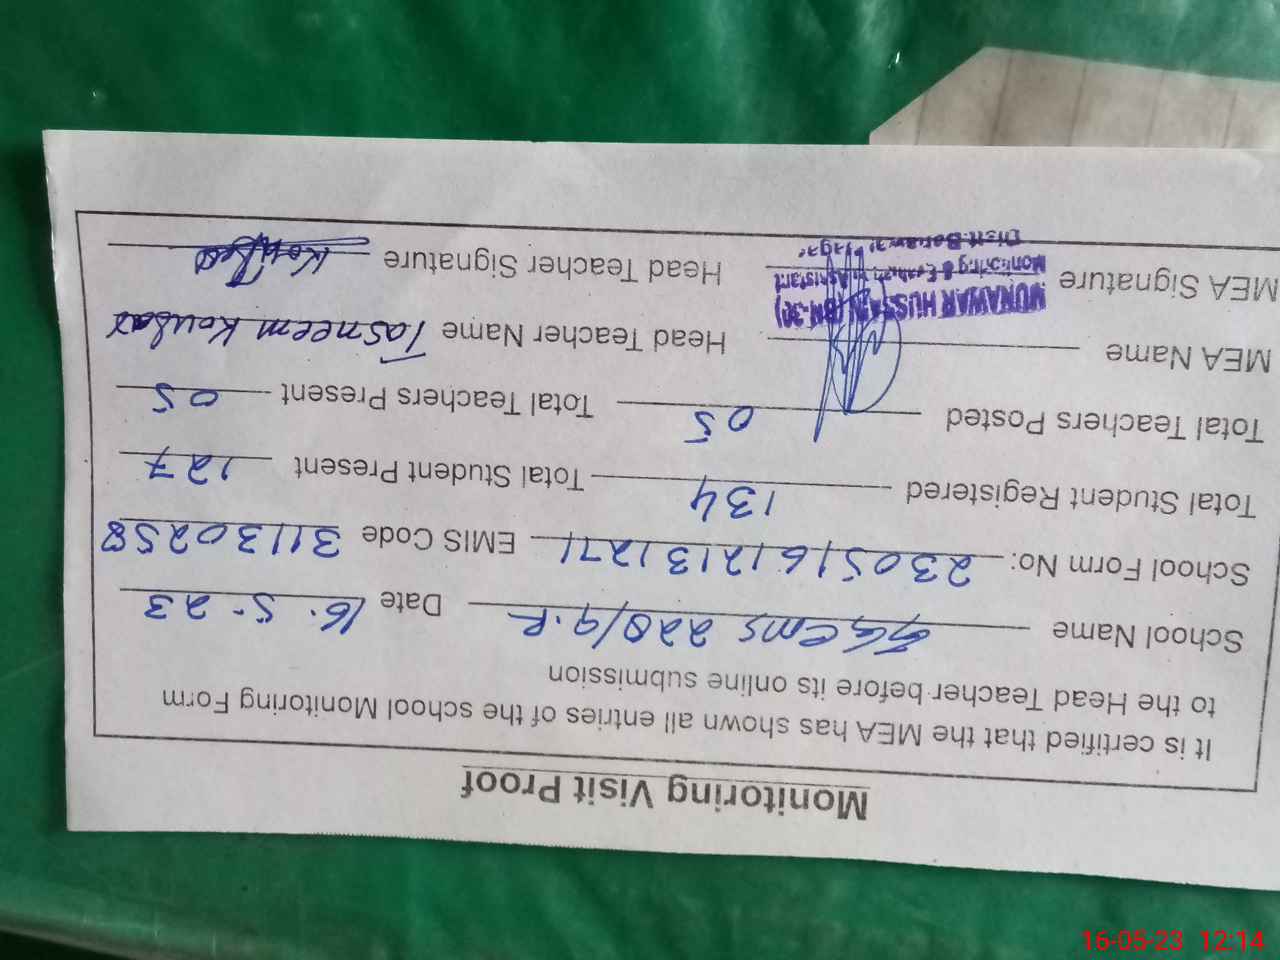 Monitoring Visit Proof
It is certified that the MEA has shown all entries of the school Monitoring Form
to the Head Teacher before its online submission
School Name GGCMS 228/9.R Date 16.5.23
School Form No: 23051612131271 EMIS Code 31130258
Total Student Registered 134 Total Student Present 127
Total Teachers Posted 05 Total Teachers Present 05
MEA Name Head Teacher Name Tasneem Kousar
MUNAWAR HUSSAIN (BN-30)
Monitoring & Evaluation Assistant
MEA Signature Head Teacher Signature
Distt. Bahawalnagar
16-05-23 12:14